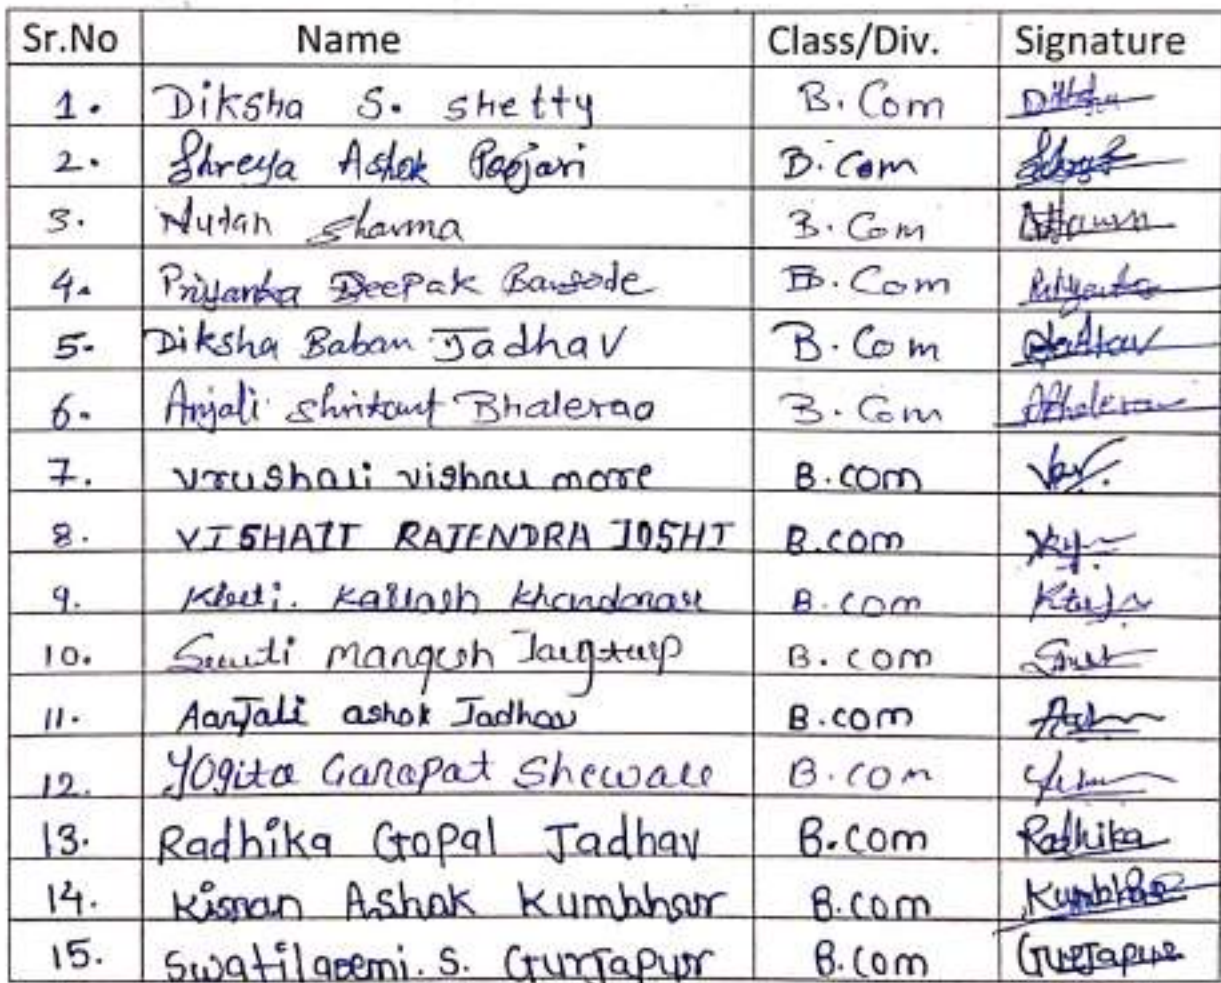 Sr.No Name Class/Div. Signature
1. Diksha S. Shetty B.Com Diksha
2. Shreya Ashok Poojari B.Com
3. Nutan Sharma B.Com
4. Priyanka Deepak Bansode B.Com Priyanka
5. Diksha Baban Jadhav B.Com
6. Anjali Shrikant Bhalerao B.Com ABhalerao
7. vrushali vishnu more B.com
8. VISHALI RAJENDRA JOSHI B.com
9. Kailash B.com
10. Mangesh B.com
11. AanJali ashok Jadhav B.com
12. Yogita Ganapat Shewale B.com
13. Radhika Gopal Jadhav B.com Radhika
14. Kisnan Ashok Kumbhar B.com Kumbhar
15. S. GurJapur B.com GurJapur